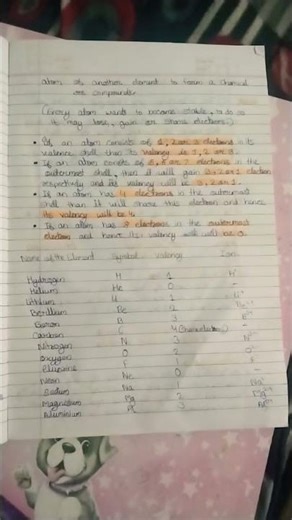 atom of another element to form a chemical
compounds.
(Every atom wants to become stable, to do so
it may lose, gain or share electrons.)
• If an atom consists of 1, 2 or 3 electrons in its
valence shell then its valency is 1, 2 or 3.
• If an atom consists of 5, 6 or 7 electrons in the
outermost shell, then it will gain 3, 2 or 1 electron
respectively and its valency will be 3, 2 or 1.
• If an atom has 4 electrons in the outermost
shell then it will share this electron and hence
its valency will be 4.
• If an atom has 8 electrons in the outermost
electron and hence its valency will be 0.
Name of the element Symbol Valence Ion
Hydrogen H 1 H⁺
Helium He 0 -
Lithium 1
Berillium Be 2
Boron B 3
Carbon C 4
Nitrogen N 3
Oxygen O 2
F 1
Neon Ne 0 -
Sodium Na 1
Magnesium Mg 2
Aluminium Al 3